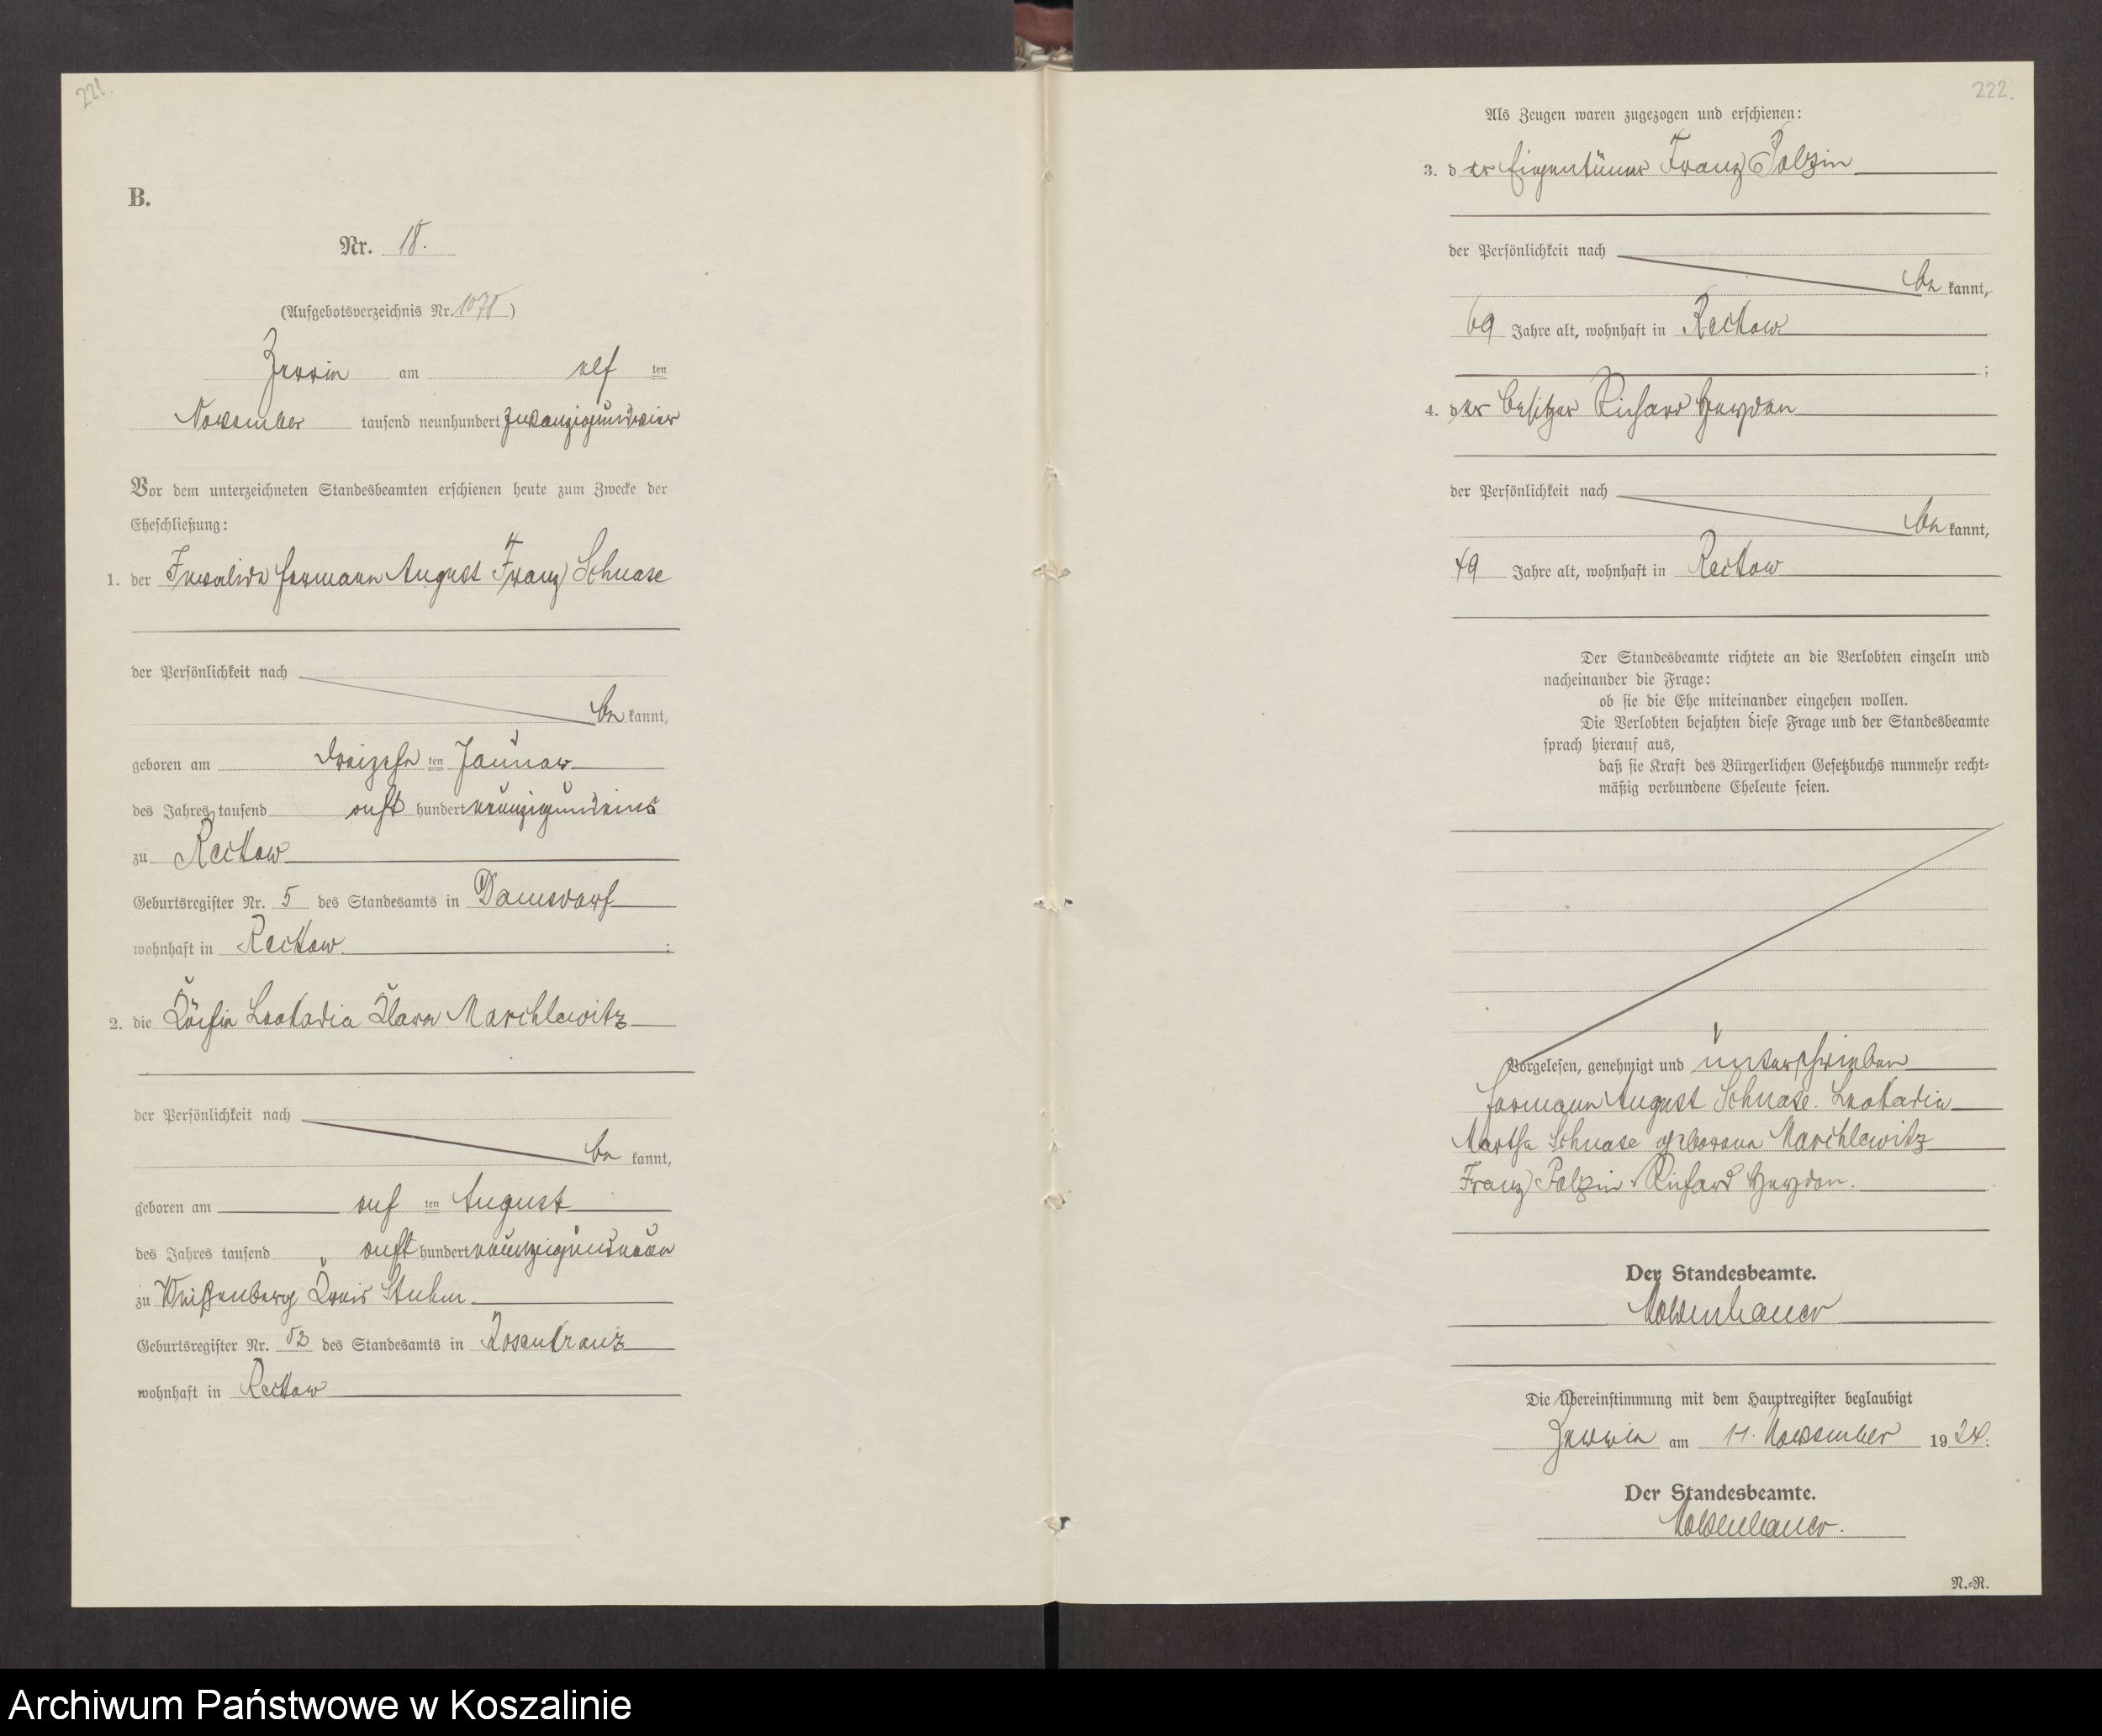 221.
B.
Nr. 18.
(Aufgebotsverzeichnis Nr. )
Zerrin am elf ten
November tausend neunhundert zwanzigundvier
Vor dem unterzeichneten Standesbeamten erschienen heute zum Zwecke der
Eheschließung:
1. der Invalide Hermann August Franz Schnase
der Persönlichkeit nach
be kannt,
geboren am dreizehn ten Januar
des Jahres tausend acht hundert neunzigundeins
zu Reckow
Geburtsregister Nr. 5 des Standesamts in Damsdorf
wohnhaft in Reckow ;
2. die Köchin Leokadia Klara Marchlewitz
der Persönlichkeit nach
be kannt,
geboren am elf ten August
des Jahres tausend acht hundert neunzigundneun
zu Weißenberg Kreis Stuhm
Geburtsregister Nr. 52 des Standesamts in Rosenkranz
wohnhaft in Reckow
222.
Als Zeugen waren zugezogen und erschienen:
3. d er Eigentümer Franz Polzin
der Persönlichkeit nach
be kannt,
69 Jahre alt, wohnhaft in Reckow
;
4. d er Besitzer Richard Heydon
der Persönlichkeit nach
be kannt,
49 Jahre alt, wohnhaft in Reckow
Der Standesbeamte richtete an die Verlobten einzeln und
nacheinander die Frage:
ob sie die Ehe miteinander eingehen wollen.
Die Verlobten bejahten diese Frage und der Standesbeamte
sprach hierauf aus,
daß sie Kraft des Bürgerlichen Gesetzbuchs nunmehr recht-
mäßig verbundene Eheleute seien.
Vorgelesen, genehmigt und unterschrieben
Hermann August Schnase. Leokadia
Martha Schnase geborene Marchlewitz
Franz Polzin. Richard Heydon.
Der Standesbeamte.
Moldenhauer
Die Übereinstimmung mit dem Hauptregister beglaubigt
Zerrin am 11. November 19 24.
Der Standesbeamte.
Moldenhauer.
N.-R.
Archiwum Państwowe w Koszalinie